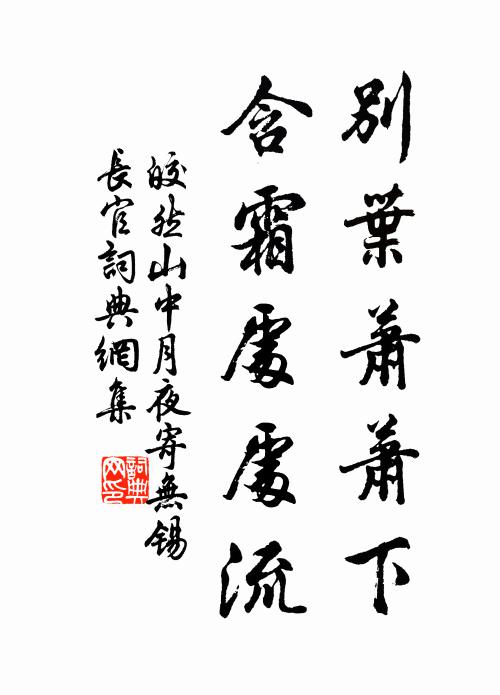 別葉蕭蕭下
含霜處處流
皎然山中月夜寄無錫
長官詞典網集
詞典
网印